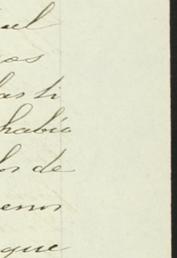 el
os
las ti
había
los de
enos
que